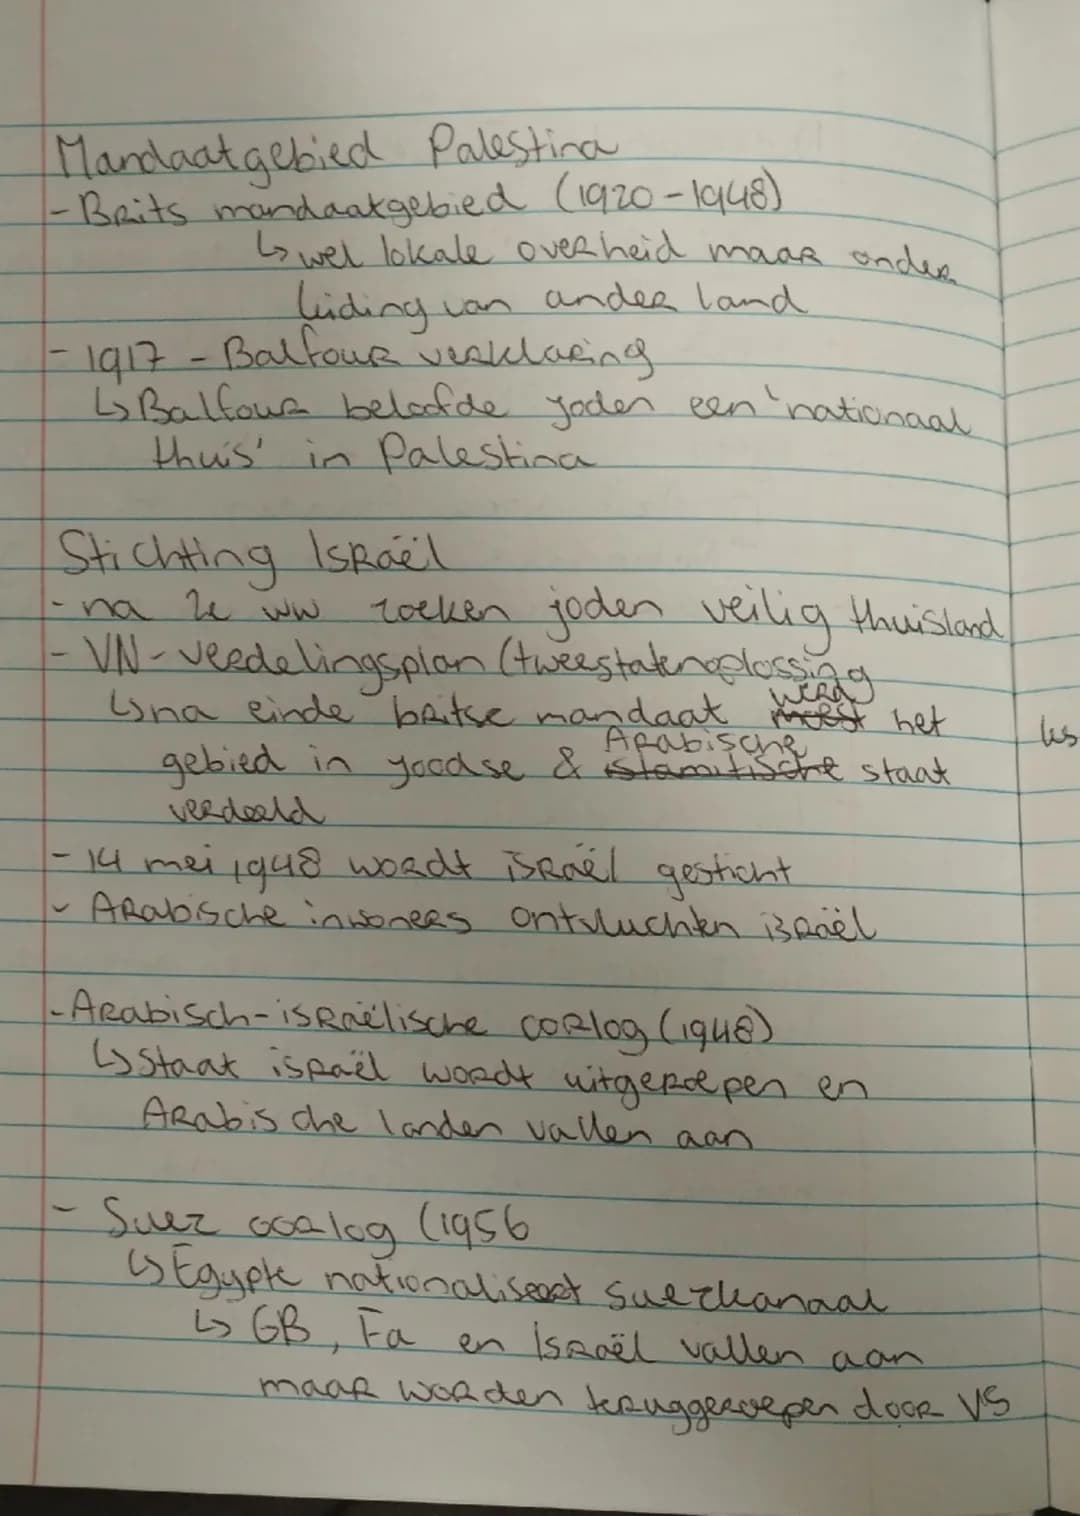 Mandaatgebied Palestina
- Brits mandaatgebied (1920-1948)
↳ wel lokale overheid maar onder
leiding van ander land
- 1917 - Balfour verklaring
↳ Balfour beloofde joden een 'nationaal
thuis' in Palestina
Stichting Israël
- na 2e ww zoeken joden veilig thuisland
- VN-verdelingsplan (tweestatenoplossing
↳ na einde britse mandaat werd het
gebied in joodse & Arabische staat
verdeeld
- 14 mei 1948 wordt israël gesticht
- Arabische inwoners ontvluchten israël
- Arabisch-israëlische oorlog (1948)
↳ Staat israël wordt uitgeroepen en
Arabische landen vallen aan
- Suez oorlog (1956
↳ Egypte nationaliseert suezkanaal
↳ GB, Fa en Israël vallen aan
maar worden teruggeroepen door VS